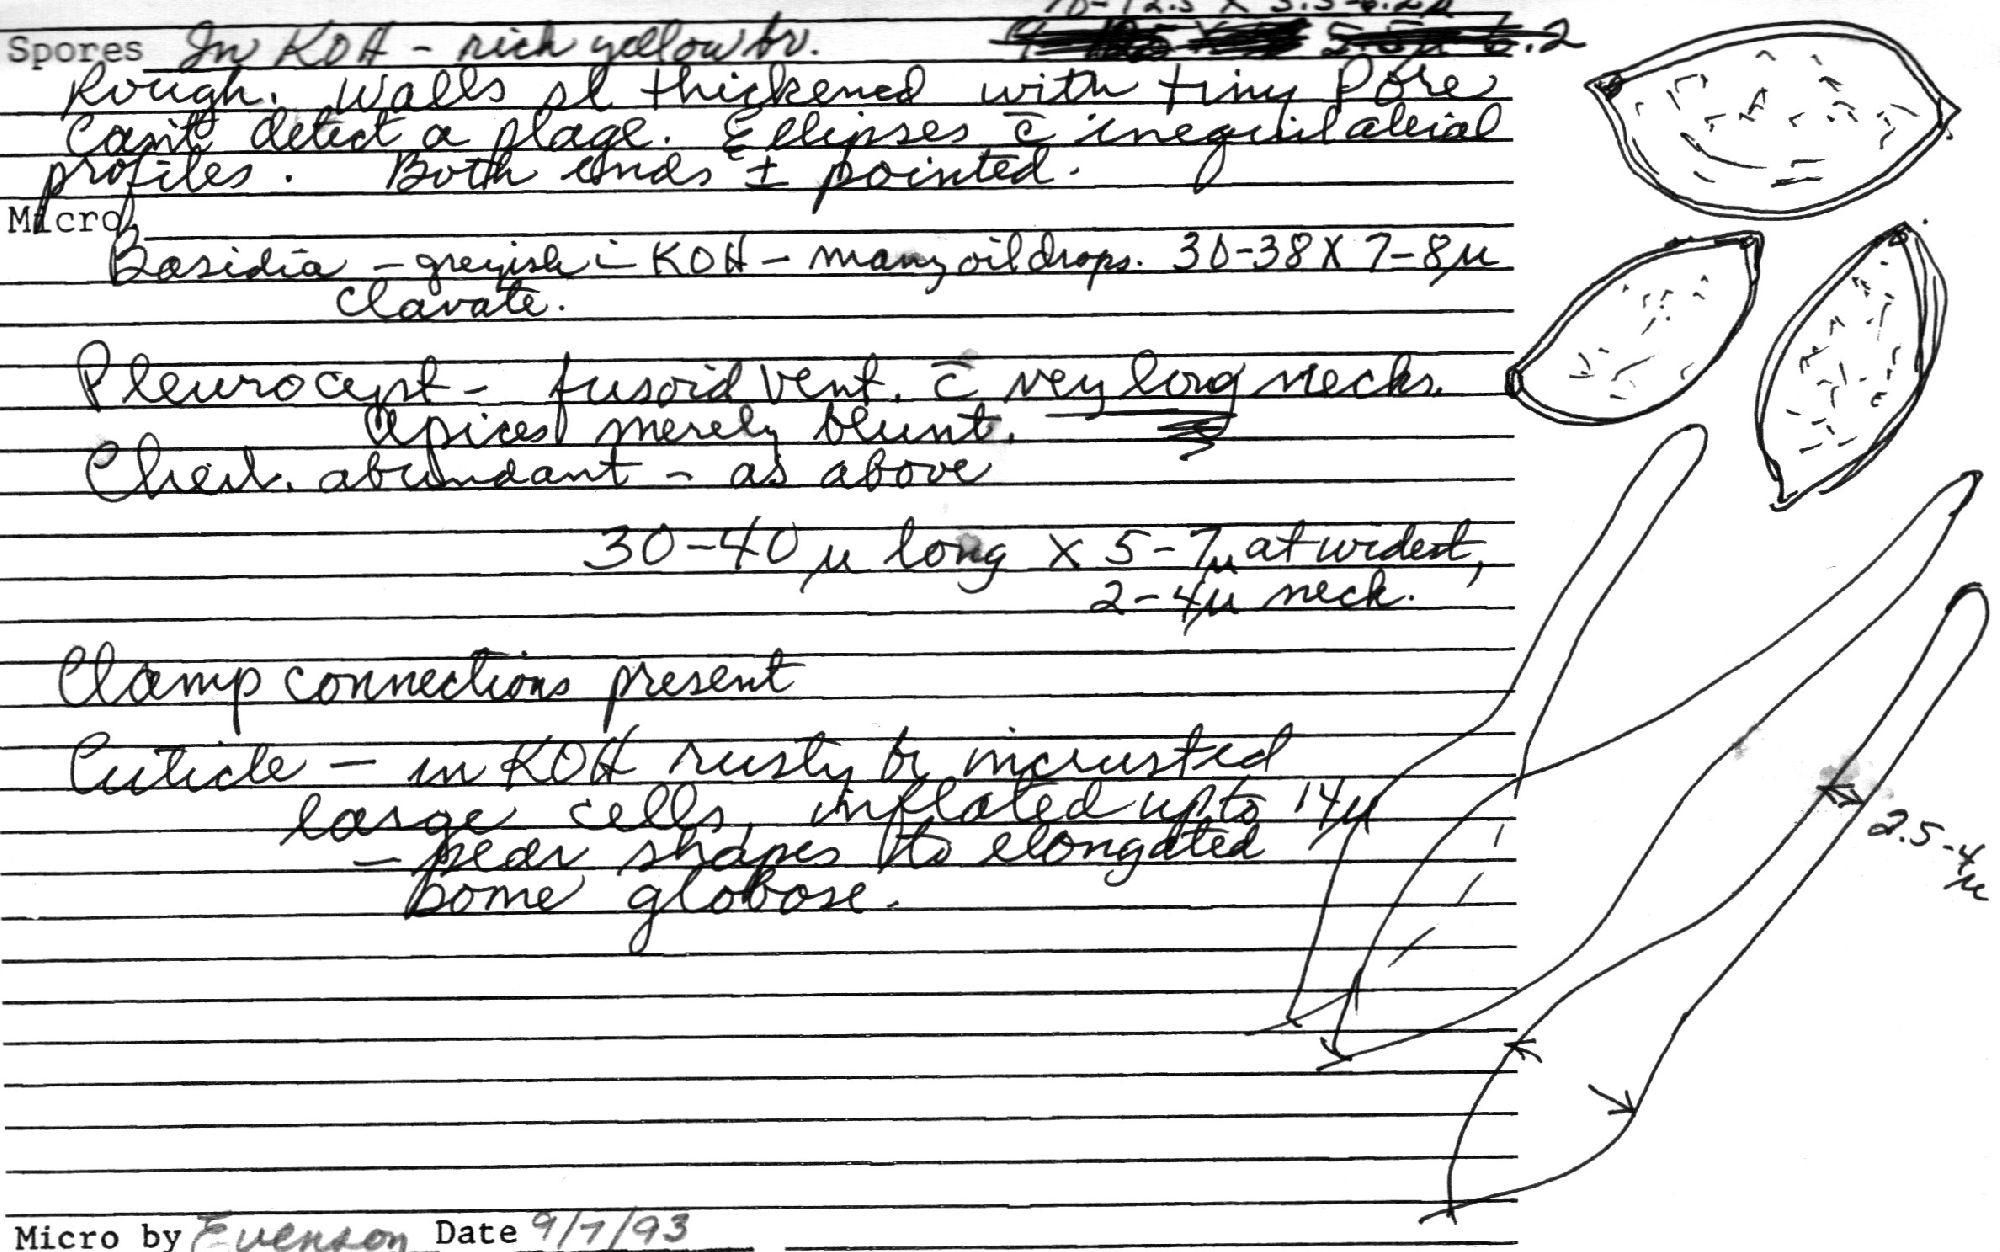 10-12.5 X 5.5-6.2µ
Spores In KOH - rich yellow br.
Rough. Walls sl thickened with tiny Pore
Can't detect a plage. Ellipses c̄ inequilateral
profiles. Both ends ± pointed.
Micro.
Basidia - greyish in KOH - many oil drops. 30-38 X 7-8µ
clavate.
Pleurocyst - fusoid vent. c̄ very long necks.
apices merely blunt.
Cheil. abundant - as above
30-40 µ long X 5-7µ at widest,
2-4µ neck.
Clamp connections present
Cuticle - in KOH rusty br incrusted
large cells, inflated up to 14µ
- pear shapes to elongated
some globose.
2.5-4
µ
Micro by Evenson Date 9/7/93